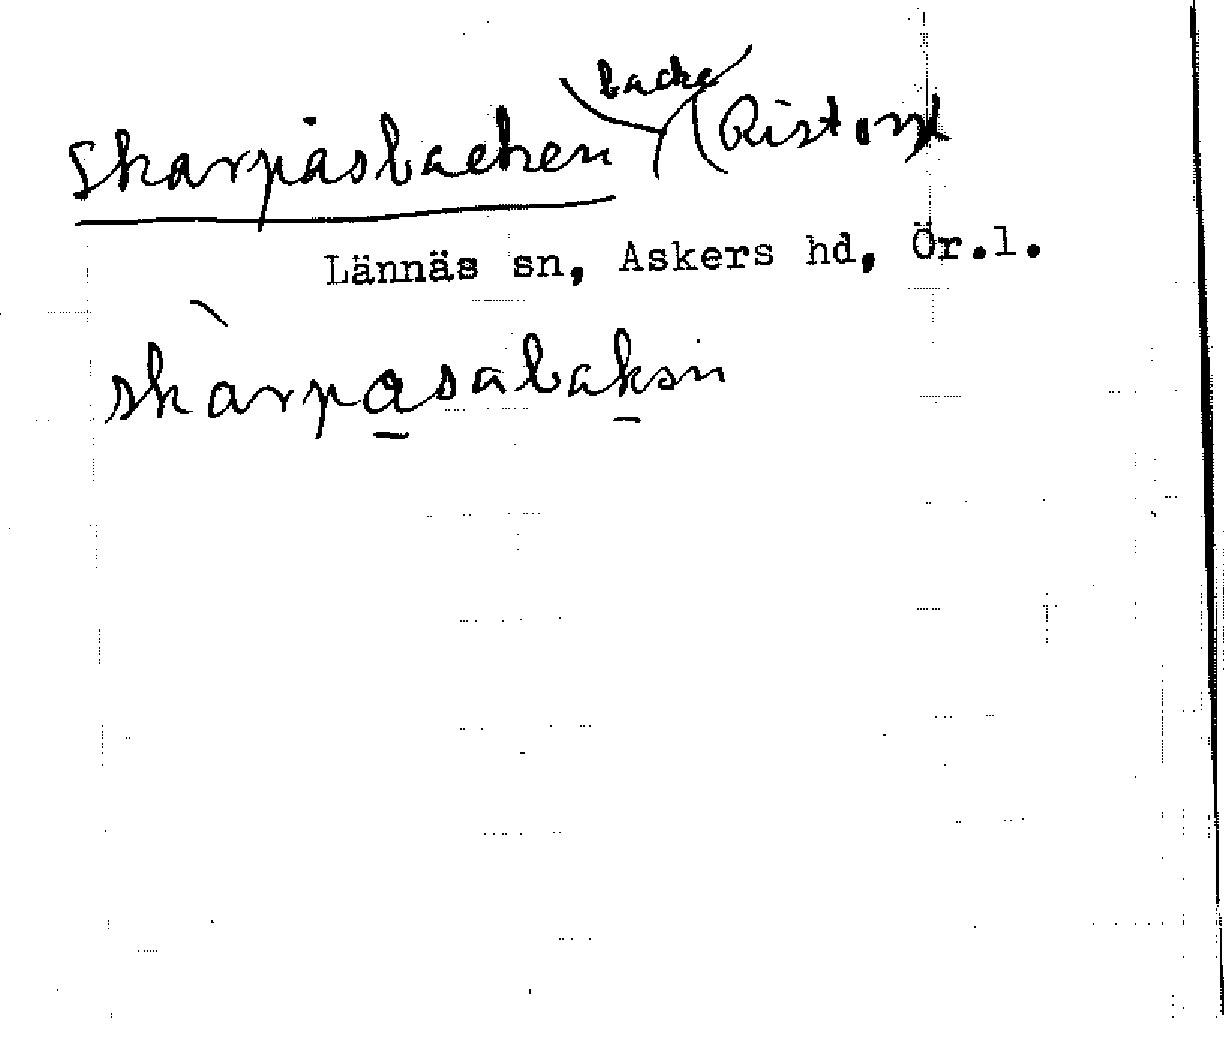 backe
Skarpåsbacken, (Ristorp
Lännäs sn, Askers hd, Ör.l.
skàrpasabaksn